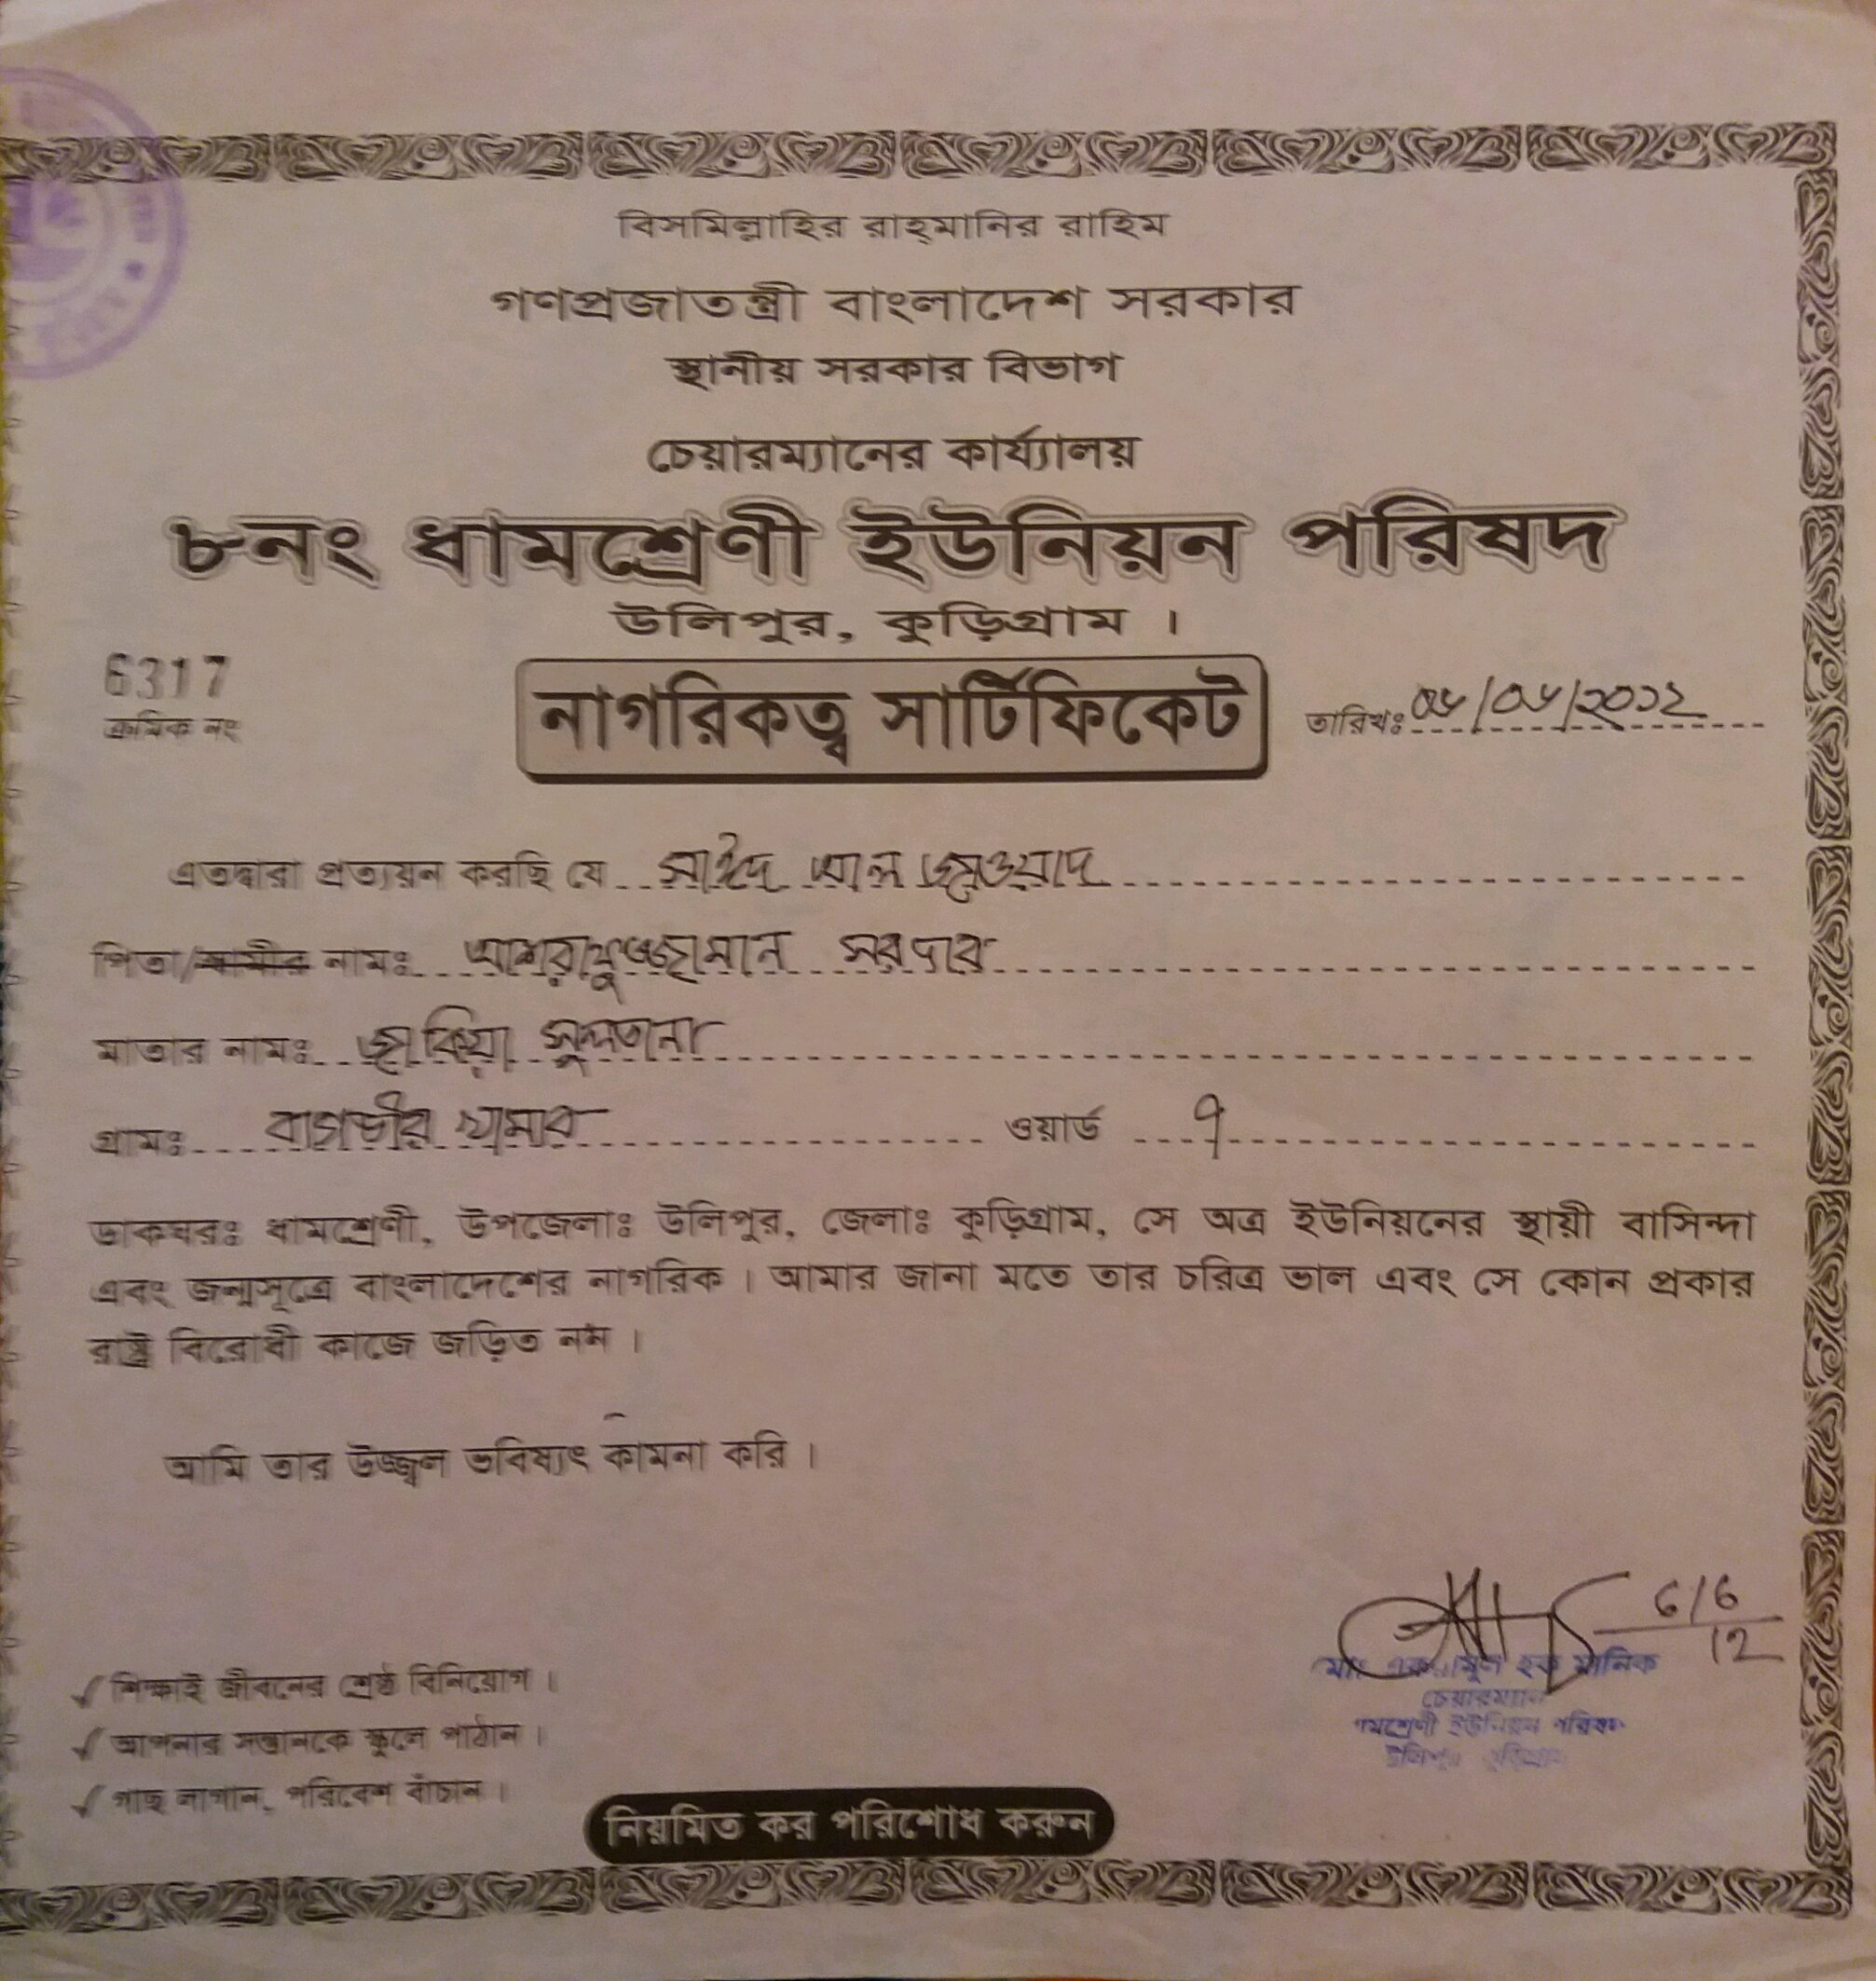 বিসমিল্লাহির রাহ্‌মানির রাহিম
গণপ্রজাতন্ত্রী বাংলাদেশ সরকার
স্থানীয় সরকার বিভাগ
চেয়ারম্যানের কার্য্যালয়
৮নং ধামশ্রেণী ইউনিয়ন পরিষদ
উলিপুর, কুড়িগ্রাম ।
6317
ক্রমিক নং
নাগরিকত্ব সার্টিফিকেট
তারিখঃ ০৬/০৬/২০১২
এতদ্বারা প্রত্যয়ন করছি যে সাঈদ আল জাওয়াদ
পিতা/স্বামীর নামঃ আশরাফুজ্জামান সরদার
মাতার নামঃ জাকিয়া সুলতানা
গ্রামঃ বাগচীর খামার ওয়ার্ড ৭
ডাকঘরঃ ধামশ্রেণী, উপজেলাঃ উলিপুর, জেলাঃ কুড়িগ্রাম, সে অত্র ইউনিয়নের স্থায়ী বাসিন্দা
এবং জন্মসূত্রে বাংলাদেশের নাগরিক । আমার জানা মতে তার চরিত্র ভাল এবং সে কোন প্রকার
রাষ্ট্র বিরোধী কাজে জড়িত নয় ।
আমি তার উজ্জ্বল ভবিষ্যৎ কামনা করি ।
6/6
12
মোঃ একরামুল হক মানিক
চেয়ারম্যান
ধামশ্রেণী ইউনিয়ন পরিষদ
উলিপুর, কুড়িগ্রাম
✓ শিক্ষাই জীবনের শ্রেষ্ঠ বিনিয়োগ ।
✓ আপনার সন্তানকে স্কুলে পাঠান ।
✓ গাছ লাগান, পরিবেশ বাঁচান ।
নিয়মিত কর পরিশোধ করুন